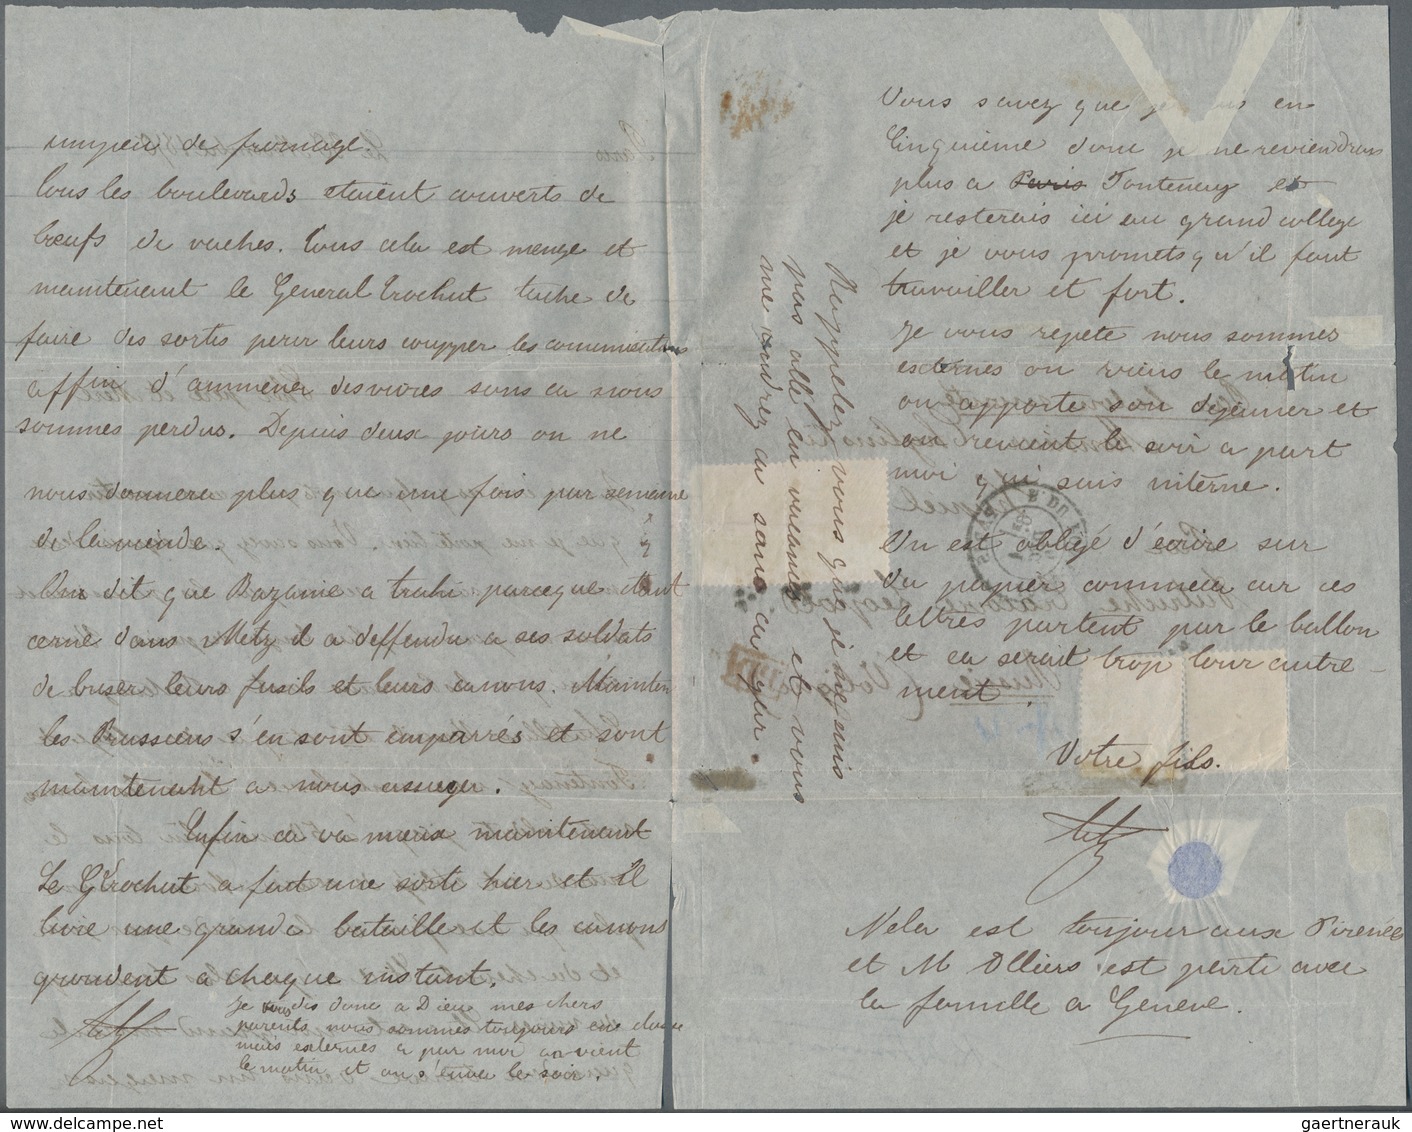 un peu de fromage.
Tous les boulevards etaient couverts de
bœufs de vaches. Tous cela est mangé et
maintenant le General Trochut tache de
faire des sortis pour leurs coupper les communications
affin d'ammener des vivres sans ca nous
sommes perdus. Depuis deux jours on ne
nous donnera plus que une fois par semaine
de la viande.
On dit que Bazaine a trahi parceque etant
cerné dans Metz il a deffendu a ses soldats
de briser leurs fusils et leurs canons. Mainten
les Prussiens s'en sont emparrés et sont
maintenant a nous assieger.
Enfin ca va mieux maintenant
Le G Trochut a fait une sortie hier et Il
livre une grande bataille et les canons
grondent a chaque instant.
Je vous dis donc a Dieu mes chers
parents nous sommes toujours en classe
mais externes a par moi on vient
le matin et on s'en va le soir.
Rappelez vous que je ne suis
pas allé en vacances et vous
me rendrez ca sans ca gar.
Vous savez que je suis en
Cinquieme donc je ne reviendrais
plus a Paris Fontenay et
je resterais ici au grand college
et je vous promets qu'il faut
travailler et fort.
Je vous repete nous sommes
externes on viens le matin
on apporte son dejeuner et
on revient le soir a part
moi qui suis interne.
On est obligé d'écrire sur
du papier comme ca car ces
lettres partent par le ballon
et ca serait trop lour autre-
ment.
Votre fils.
Nela est toujour aux Pirenées
et M Olliers est parti avec
la famille a Geneve.
gaertnerauk
delcampe.net